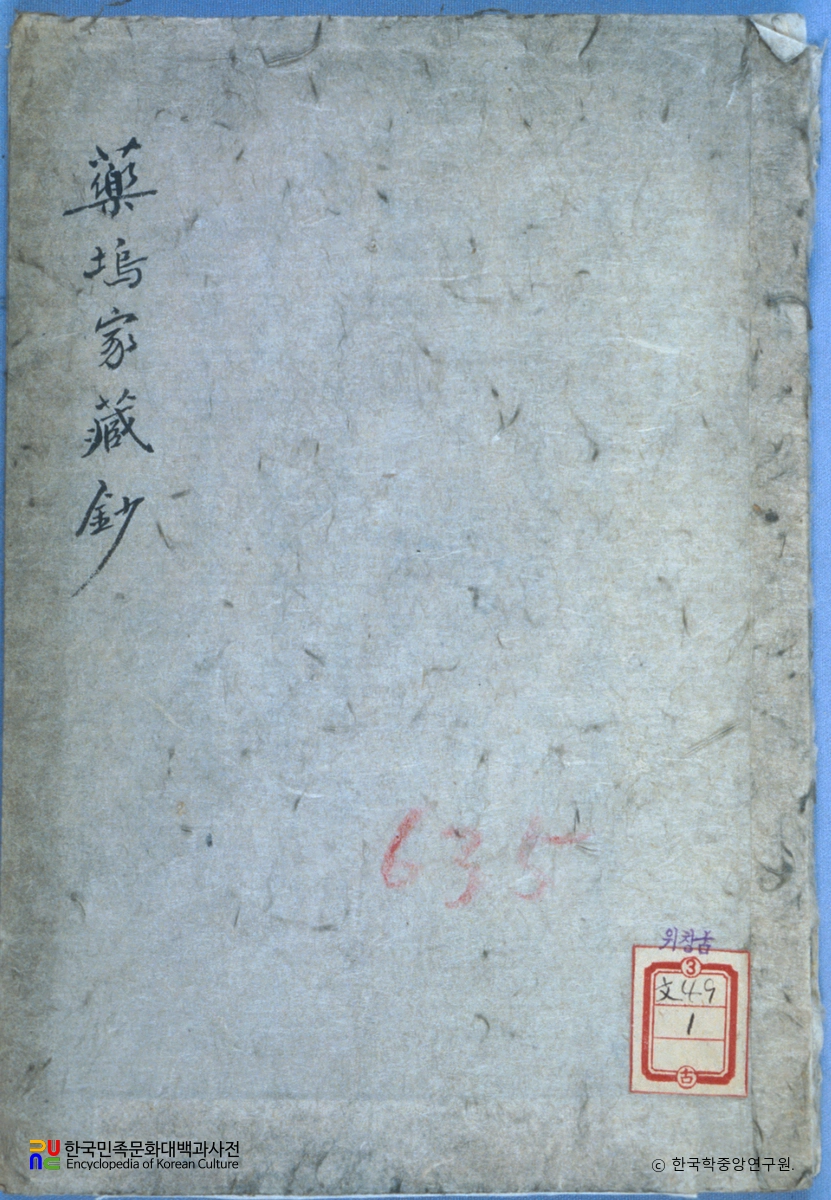 藥塢家藏鈔
635
위창古
3
文49
1
古
한국민족문화대백과사전
Encyclopedia of Korean Culture
© 한국학중앙연구원.